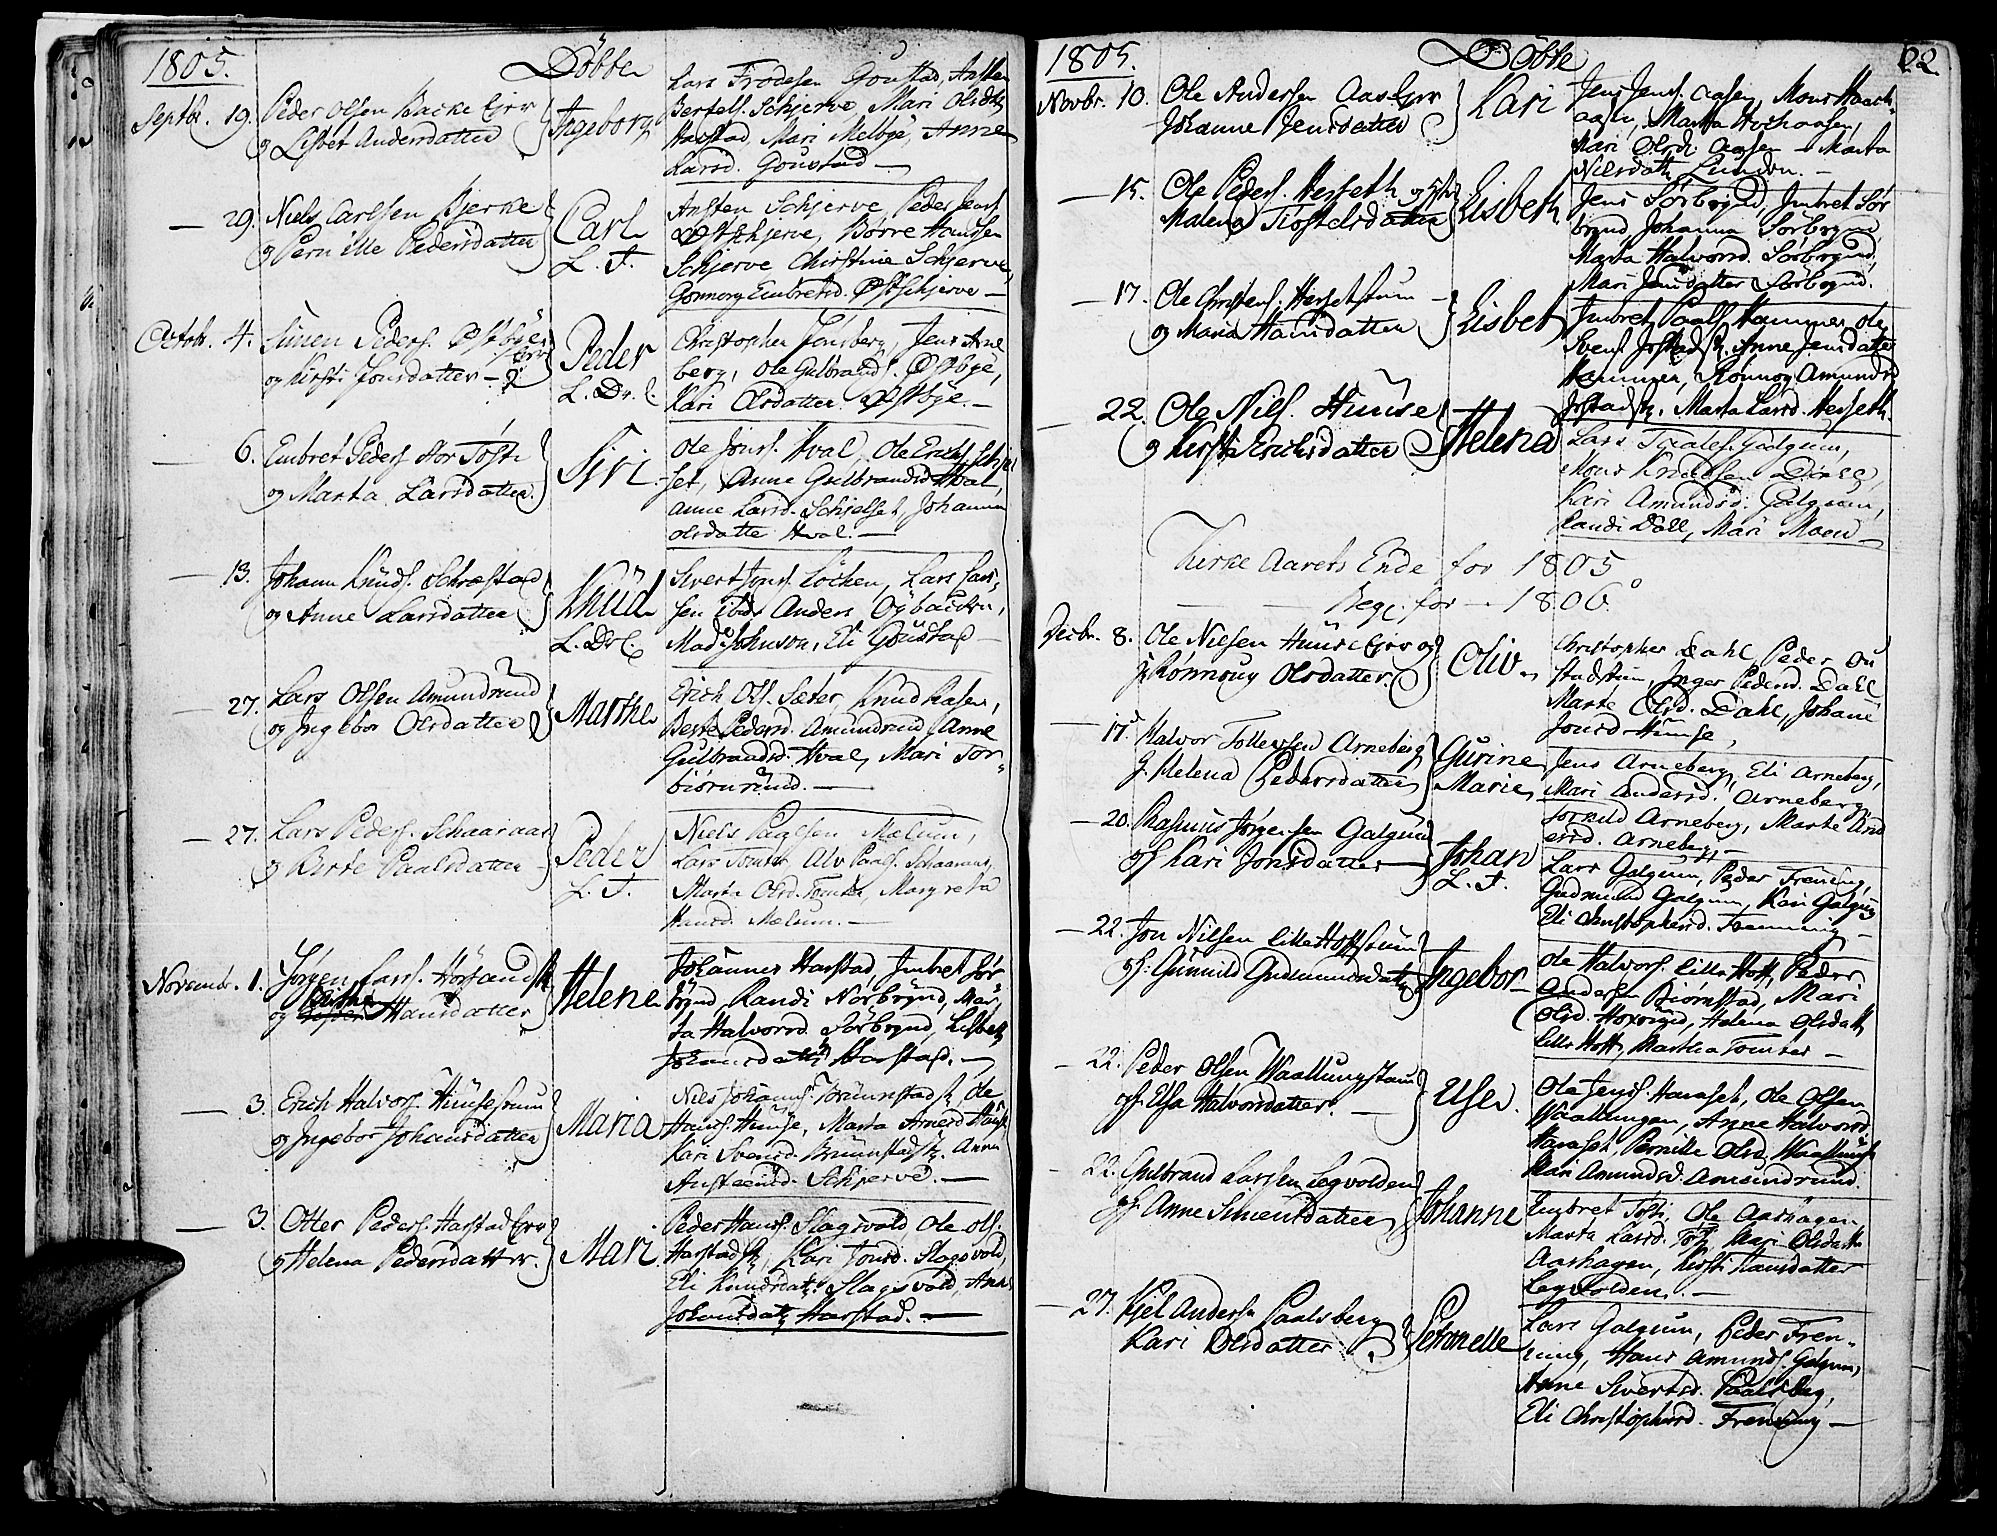 1805.
Döbte
Septbr. 19. Peder Olsen Backe Ejer
og Lisbet Andersdatter
Ingeborg
Lars Frodesen Goustad, Ansten
Bertels. Schjerve, Mari Olsdtr
Harstad, Mari Melbye, Anne
Larsd. Goustad —
— 29. Niels Carlsen Bjerke
og Pernille Pedersdatter
Carl
L. T.
Ansten Schjerve, Peder Jens
Østschjerve, Börre Hansen
Schjerve, Christine Schjerve,
Gonnory Embretsd. Østschjerve —
Octobr. 4. Simen Peders. Østbye
og Kirsti Jonsdatter —
Peder
L. Dr.
Christopher Jonsberg, Jens Arne
berg, Ole Gulbrands. Østbye,
Kari Olsdatter Østbye. —
— 6. Embret Peders Stor Tøste
og Marta Larsdatter
Siri
Ole Jons. Hval, Ole Erichs. Schjel
set, Anne Gulbrandsd Hval,
Anne Larsd. Schjelset, Johanna
Olsdatte Hval. —
— 13. Johann Knuds. Schræstad
og Anne Larsdatter
Knud
L. Dr.
Sivert Jons. Löchen, Lars Lar
sen ibd. Anders Oÿbachen,
Mad. Johnson, Eli Goustad —
— 27. Lars Olsen Amundrud
og Ingebor Olsdatter
Marthe
Erich Ols. Sæter, Knud
Berte Pedersd. Amundrud, Anne
Gulbrandsd. Hval, Mari Tor
biörnrud. —
— 27. Lars Peders. Schaaraas
og Berte Paalsdatter
Peder
L. T.
Niels Paalsen Mælum,
Lars Tomter, Alv Paals. Schaaraas,
Marta Olsd. Tomter, Margreta
Knudsd. Mælum. —
Novembr. 1. Jörgen Lars.
og Hansdatter
Helene
Johannes Harstad, Imbret Sør
bÿnd, Randi Norbÿnd, Mar
ta Halvorsd. Sörbÿnd, Lisbet
Johansdatter Harstad. —
— 3. Erich Halvors. Huusestuen
og Ingebor Johansdatter
Maria
Niels Johanns. Brunstad, Ole
Hans. Huuse, Marta Arnesd
Kari Svensd. Brunstad, Anne
Anstensd. Schjerve. —
— 3. Otter Peders. Harstad Ejer
og Helena Pedersdatter.
Mari
Peder Hans. Slagsvold, Ole Ols.
Harstad, Kari Jonsd. Slagsvold,
Eli Knudsdatr Slagsvold, Anne
Johansdatr Harstad. —
1805.
Döbte
22.
Novbr. 10. Ole Andersen Aas Ejer
Johanne Jensdatter
Kari
Jens Jens. Aasen, Mons
Marta
Kari Olsdr Aasen — Marta
Nilsdatr Lunden. —
— 15. Ole Peders. Herseth og
Malena Tostelsdatter
Lisbeth
Jens Sørbÿnd, Imbret Sör
bÿnd, Johanna Sörbÿnd
Marta Halvorsd. Sörbÿnd,
Mari Jensdatter Sörbÿnd.
— 17. Ole Christens. Hersetstuen —
og Maria Hansdatter
Lisbet
Imbret Paals. Hammer, Ole
Svens. Jostad, Anne Jensdatter
Hammer, Ronnog Amundsd
Jostad, Marta Larsd. Herseth.
— 22. Ole Nils. Huuse
og Kirsti Erichsdatter
Helena
Lars Taales. Galgum,
Mons Knudsen Dæll,
Kari Amundsd. Galgum,
Randi Dæll, Mari Moen —
Kirke Aarets Ende for 1805
Beg. for — 1806.
Decbr. 8. Ole Nielsen Huuse Ejer og
Rönnoug Olsdatter.
Oliv.
Christopher Dahl, Peder On
stadstuen, Inger Pedersd. Dahl
Marte Olsd. Dahl, Johane
Jonsd Huuse,
— 17. Halvor Tollefsen Arneberg
g. Helena Pedersdatter
Gurine
Marie
Jens Arneberg, Eli Arneberg,
Mari Andersd. Arneberg
Arneberg, Marte And
ersd. Arneberg —
— 20. Rasmus Jörgensen Galgum
og Kari Jonsdatter —
Johan
L. T.
Lars Galgum, Peder Frenning,
Gudmund Galgum, Kari Galgum
Eli Christophersd. Frenning —
— 22. Jon Nilsen lille Hoffstuen
og Gunnild Gudmundsdatter
Ingebor —
Ole Halvors. lille Hoff, Peder
Andersen Biørnstad, Mari
Olsd. Hoxrud, Helena Olsdatt
lille Hoff, Martha Tomter —
— 22. Peder Olsen Waallungstuen
og Elsa Halvorsdatter. —
Else.
Ole Jens. Haraset, Ole Olsen
Waallungen, Anne Halvorsd
Haraset, Pernille Olsd. Waallung
Kari Amundsd. Amundrud.
— 22. Gulbrand Larssen Legvolden
og Anne Simensdatter
Johanne
Embret Tøste, Ole Aashagen
Marta Larsd. Tøste Mari Olsdattr
Aashagen, Kirsti Hansdatter
Legvolden. —
— 27. Kjel Anders. Paalsberg
Kari Olsdatter
Petronelle
Lars Galgum, Peder Fren
ning, Hans Amunds. Galgum,
Anne Sivertsd. Paalsberg,
Eli Christophersd. Frenning —